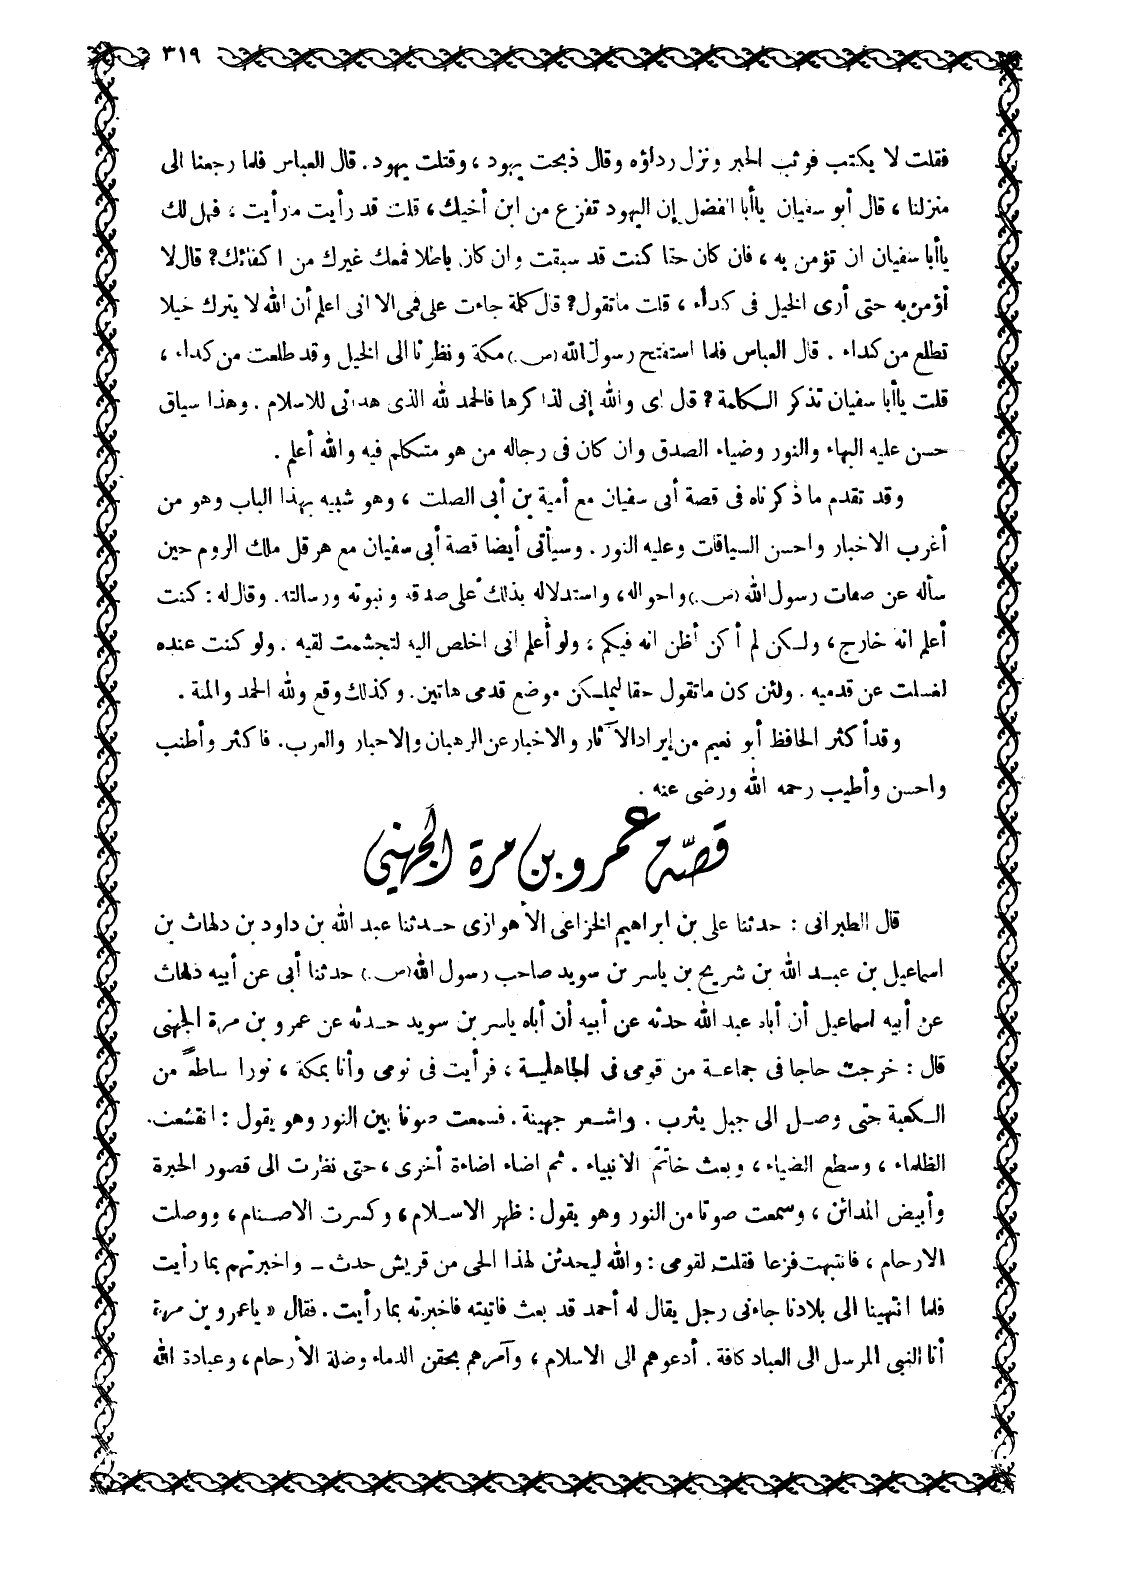 ٣١٩
فقلت لا يكتب فوثب الحبر ونزل رداؤه وقال ذبحت يهود ، وقتلت يهود . قال العباس فلما رجعنا الى
منزلنا ، قال أبو سفيان ياأبا الفضل إن اليهود تفزع من ابن أخيك ، قلت قد رأيت مارأيت ، فهل لك
ياأبا سفيان ان تؤمن به ، فان كان حقا كنت قد سبقت وان كان باطلا فمعك غيرك من اكفائك ? قال لا
أؤمن به حتى أرى الخيل فى كداء ، قلت ماتقول ? قال كلمة جاءت على فمى الا انى اعلم أن الله لا يترك خيلا
تطلع من كداء . قال العباس فلما استفتح رسول الله (ص.) مكة ونظرنا الى الخيل وقد طلعت من كداء ،
قلت ياأبا سفيان تذكر الكلمة ? قال اى والله إنى لذاكرها فالحمد لله الذى هدانى للاسلام . وهذا سياق
حسن عليه البهاء والنور وضياء الصدق وان كان فى رجاله من هو متكلم فيه والله أعلم .
وقد تقدم ماذكرناه فى قصة أبى سفيان مع أمية بن أبى الصلت ، وهو شبيه بهذا الباب وهو من
أغرب الاخبار واحسن السياقات وعليه النور . وسيأتى أيضا قصة أبى سفيان مع هرقل ملك الروم حين
سأله عن صفات رسول الله (ص.) واحواله ، واستدلاله بذلك على صدقه ونبوته ورسالته . وقال له : كنت
أعلم انه خارج ، ولكن لم أكن أظن انه فيكم ، ولو أعلم انى اخلص اليه لتجشمت لقيه . ولو كنت عنده
لغسلت عن قدميه . ولئن كان ماتقول حقا ليملكن موضع قدمى هاتين . وكذلك وقع ولله الحمد والمنة .
وقد أكثر الحافظ أبو نعيم من إيراد الآثار والاخبار عن الرهبان والاحبار والعرب . فاكثر وأطنب
واحسن وأطيب رحمه الله ورضى عنه .
قصة عمرو بن مرة الجهني
قال الطبرانى : حدثنا على بن ابراهيم الخزاعى الأهوازى حدثنا عبد الله بن داود بن دلهاث بن
اسماعيل بن عبد الله بن شريح بن ياسر بن سويد صاحب رسول الله (ص.) حدثنا أبى عن أبيه دلهاث
عن أبيه اسماعيل أن أباه عبد الله حدثه عن أبيه أن أباه ياسر بن سويد حدثه عن عمرو بن مرة الجهنى
قال : خرجت حاجا فى جماعة من قومى فى الجاهلية ، فرأيت فى نومى وأنا بمكة ، نورا ساطعاً من
الكعبة حتى وصل الى جبل يثرب . واشعر جهينة . فسمعت صوتا بين النور وهو يقول : انقشعت
الظلماء ، وسطع الضياء ، وبعث خاتم الانبياء . ثم اضاء اضاءة أخرى ، حتى نظرت الى قصور الحيرة
وأبيض المدائن ، وسمعت صوتا من النور وهو يقول : ظهر الاسلام ، وكسرت الاصنام ، ووصلت
الارحام ، فانتبهت فزعا فقلت لقومى : والله ليحدثن لهذا الحى من قريش حدث ـ واخبرتهم بما رأيت
فلما انتهينا الى بلادنا جاءنى رجل يقال له أحمد قد بعث فاتيته فاخبرته بما رأيت . فقال « ياعمرو بن مرة
أنا النبى المرسل الى العباد كافة . أدعوهم الى الاسلام ، وآمرهم بحقن الدماء وصلة الأرحام ، وعبادة الله